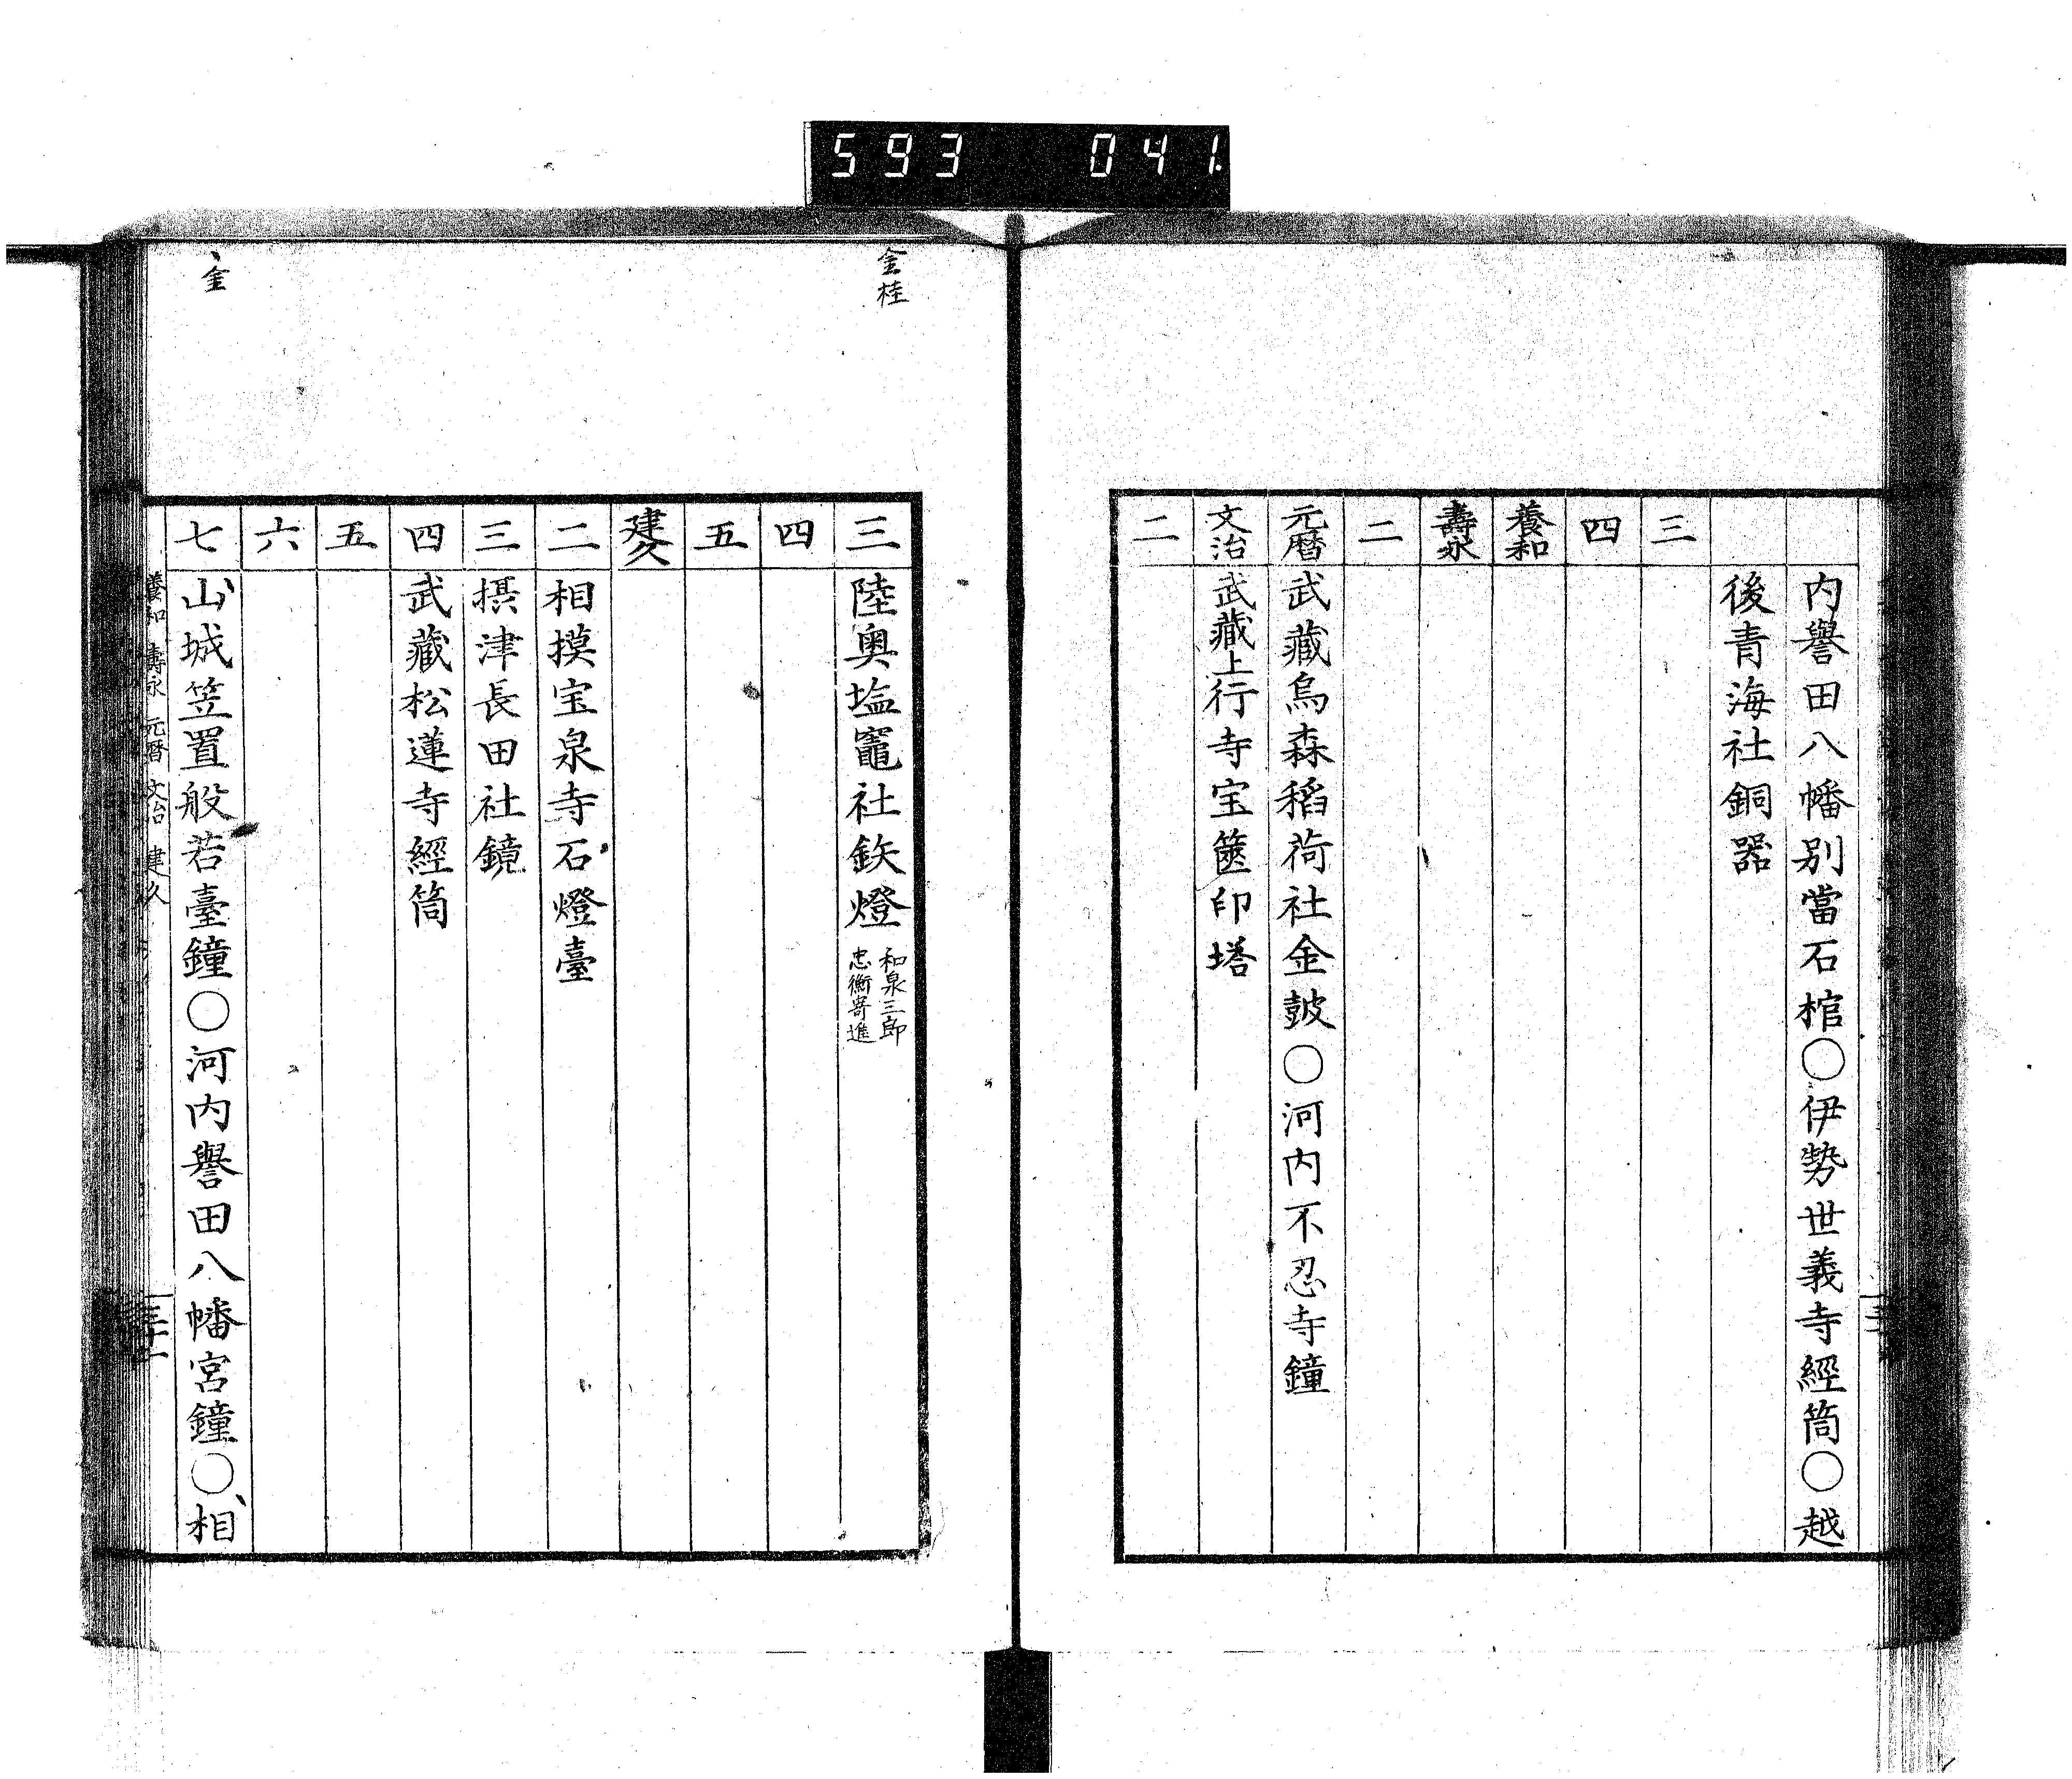 593 041
内譽田八幡別當石棺〇伊勢世義寺經筒〇越
後青海社銅器
三
四
養和
壽永
二
元暦 武藏烏森稻荷社金鼓〇河内不忍寺鐘
文治 武藏上行寺宝篋印塔
二
金桂
三 陸奥塩竈社鉄燈 和泉三郎
忠衡寄進
四
五
建久
二 相摸宝泉寺石燈臺
三 摂津長田社鏡
四 武藏松蓮寺經筒
五
六
金
七 山城笠置般若臺鐘〇河内譽田八幡宮鐘〇相
養和 壽永 元暦 文治 建久